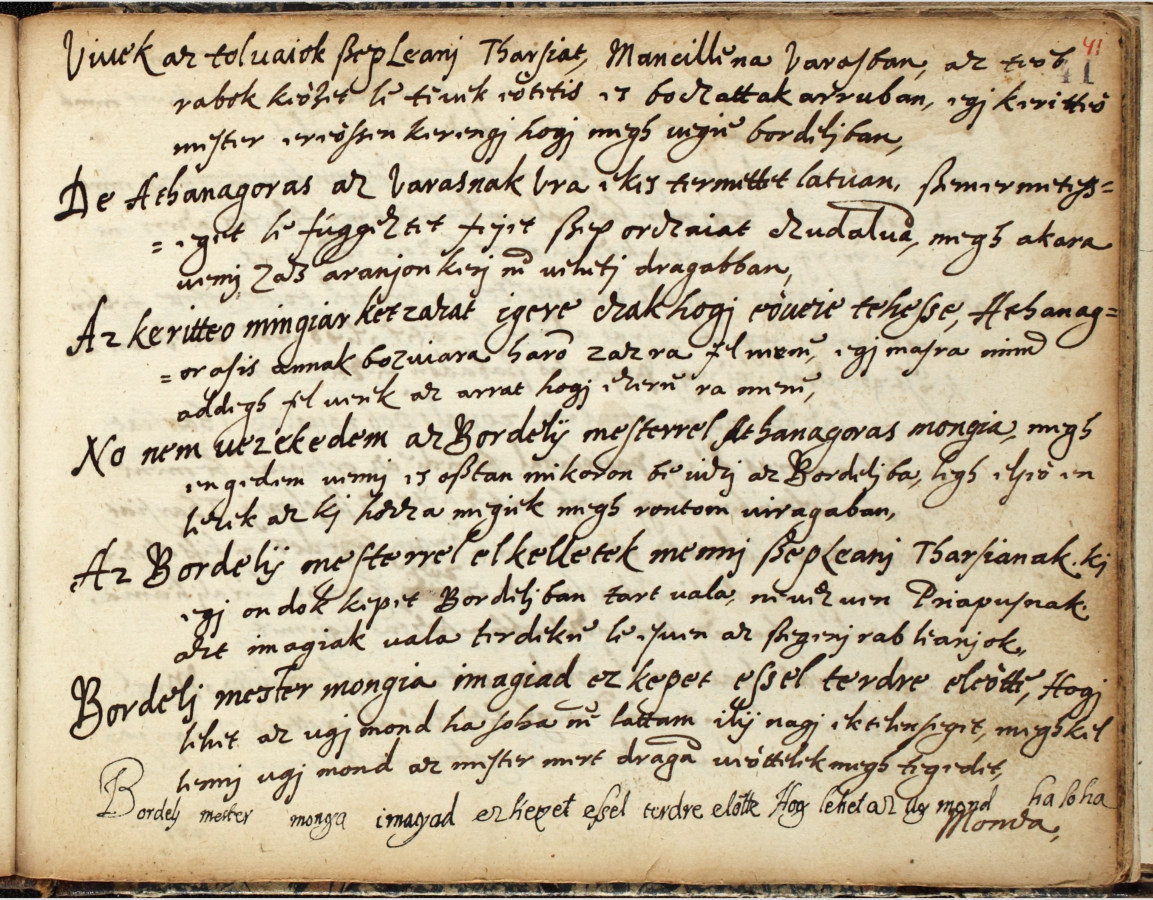 41
Viuek az toluaiok ßepLeanj Tharsiat, Mancillēna Varasban, az teob
rabok keózet le tēuek eótetis is bodzattak arruban, egj keritteó
mester ereóssen kerengj hogj megh vegiē bordeljban,
De Athanagoras az Varasnak Vra ekis termettet latuan, ßemermetess=
=eget le fúggeztet fejet ßep ordzaiat dzudalua, megh akara
venni, zaz aranjon kerj nē vehetj dragabban,
Az keritteo mingiar ket zazat igere dzak hogj eóueie tehesse, Athanag=
=orasis annak bozuiara harō zazra fel menē, egj masra mind
addegh fel verik az arrat hogj ezerē ra menē,
No nem vezekedem az Bordelÿ mesterrel Athanagoras mongia, megh
engedem venni is oßtan mikoron be viszj az Bordeljba, legh elseó en
lezek az kj hozza megiek megh rontom viragaban,
Az Bordelÿ mesterrel el kelletek mennj ßepLeanj Tharsianak. kj
egj ondok kepet Bordeljban tart vala, neuezuen Priapusnak.
azt imagiak vala terdekē le esuen az ßegenj rab leanjok,
Bordelj mester mongia imagiad ez kepet essel terdre eleótte, Hogj
lehet az ugj mond ha soha nē lattam ilÿ nagj ektelenseget, megh kel
lennj ugj mond az mester mert dragā veóttelek megh tegedet,
Bordelj mester monga imagad ez kepet essel terdre elotte Hog lehet az ug mond ha soha
Monda,